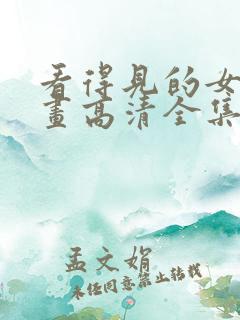 看得见的女
画高清全集
孟文娟
未经同意禁止转载